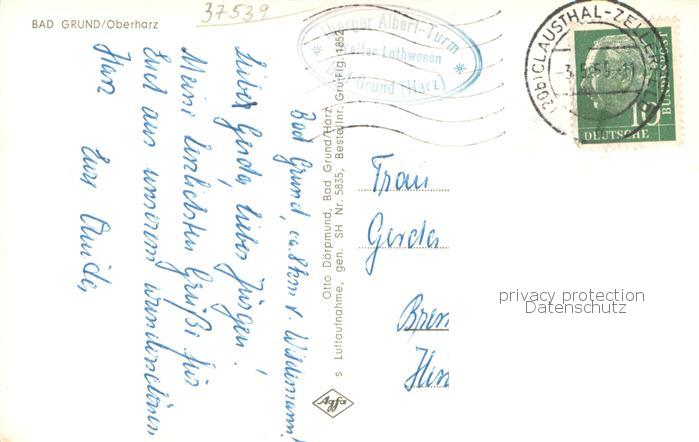 BAD GRUND/Oberharz
37539
Iberger Albert-Turm
Walter Lathwesen
Bad Grund (Harz)
(20b) CLAUSTHAL-ZELLERFELD
-3.5.59-11
DEUTSCHE
BUNDESPOST
10
Bad Grund, ca. 8 km v. Wildemann!
Liebe Gerda, lieber Jürgen!
Meine herzlichsten Grüße für
Euch aus unserem wunderschönen
Harz
Eure
Otto Dörpmund, Bad Grund/Harz
s Luftaufnahme, gen. SH Nr. 5835, Bestellnr. Gru Flg. 1852
Agfa
Frau
Gerda
Brem
privacy protection
Datenschutz